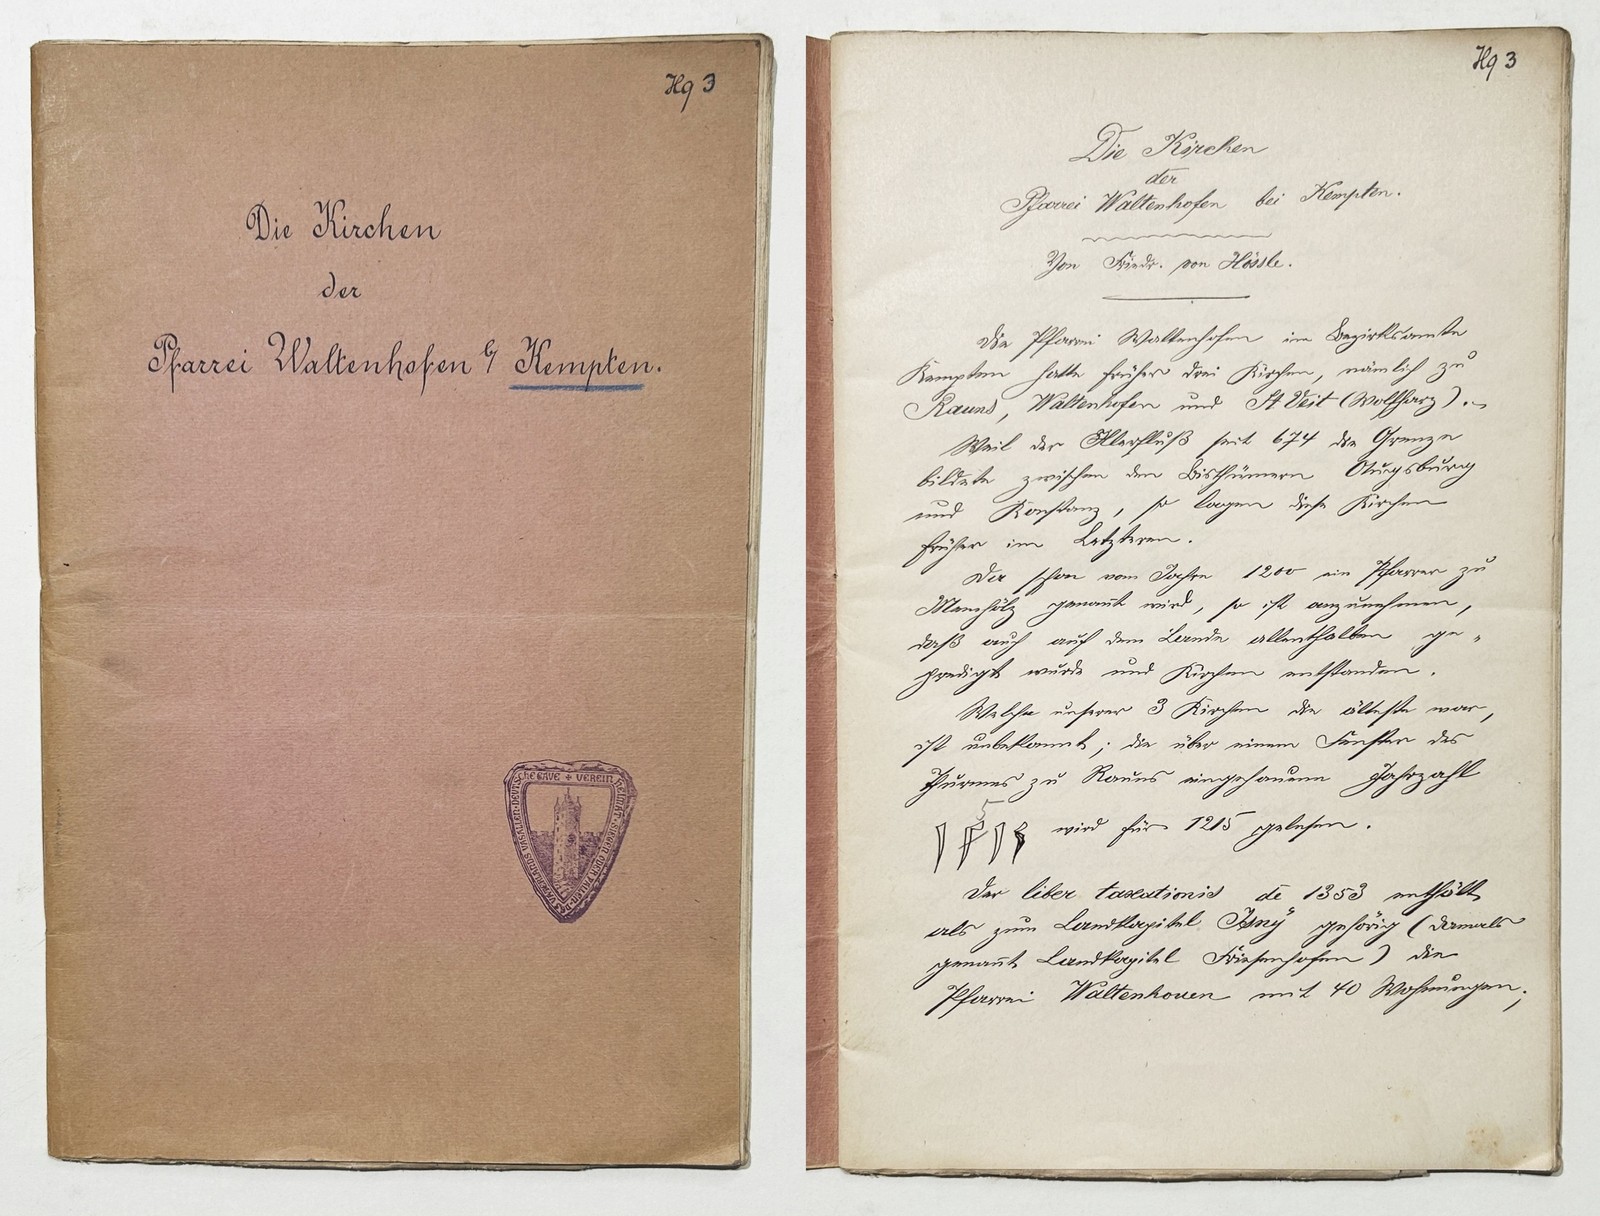 Hg 3
Die Kirchen
der
Pfarrei Waltenhofen b/ Kempten.
VEREIN HEIMAT
Hg 3
Die Kirchen
der
Pfarrei Waltenhofen bei Kempten.
Von Friedr. von Hössle.
Die Pfarrei Waltenhofen im Bezirksamte
Kempten hatte früher drei Kirchen, nämlich zu
Rauns, Waltenhofen und St Veit (Wolfharz).
Weil der Illerfluß seit 674 die Grenze
bildete zwischen den Bisthümern Augsburg
und Konstanz, so lagen diese Kirchen
früher im Letzteren.
Da schon vom Jahre 1200 ein Pfarrer zu
Memhölz genañt wird, so ist anzunehmen,
daß auch auf dem Lande allenthalben ge-
predigt wurde und Kirchen entstanden.
Welche unserer 3 Kirchen die älteste war,
ist unbekannt; die über einem Fenster des
Thurmes zu Rauns eingehauene Jahrzahl
wird für 1215 gelesen.
Der liber taxationis de 1353 enthält
als zum Landkapitel Isny gehörig (damals
genañt Landkapitel Friesenhofen) die
Pfarrei Waltenhouen mit 40 Wohnungen;